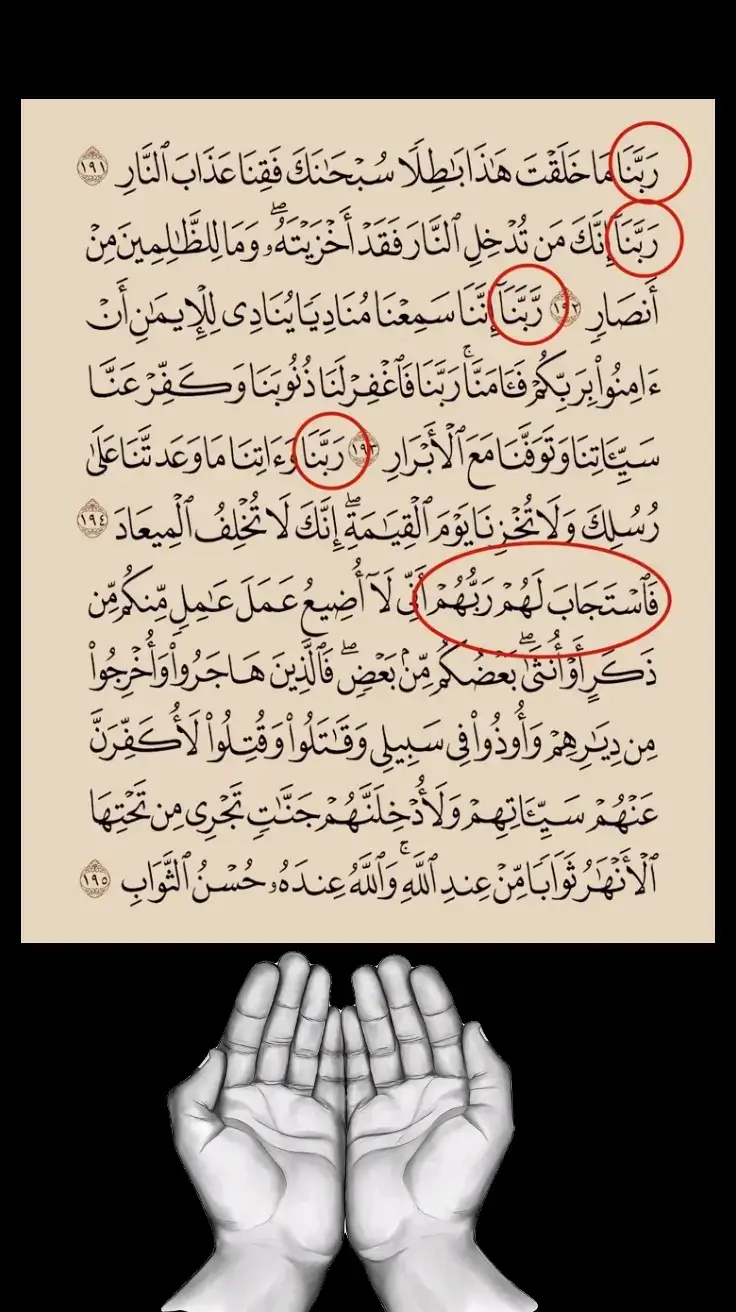 رَبَّنَا مَا خَلَقْتَ هَٰذَا بَٰطِلًا سُبْحَٰنَكَ فَقِنَا عَذَابَ ٱلنَّارِ ١٩١
رَبَّنَآ إِنَّكَ مَن تُدْخِلِ ٱلنَّارَ فَقَدْ أَخْزَيْتَهُۥۖ وَمَا لِلظَّٰلِمِينَ مِنْ
أَنصَارٍ ١٩٢ رَّبَّنَآ إِنَّنَا سَمِعْنَا مُنَادِيًا يُنَادِى لِلْإِيمَٰنِ أَنْ
ءَامِنُوا۟ بِرَبِّكُمْ فَـَٔامَنَّاۚ رَبَّنَا فَٱغْفِرْ لَنَا ذُنُوبَنَا وَكَفِّرْ عَنَّا
سَيِّـَٔاتِنَا وَتَوَفَّنَا مَعَ ٱلْأَبْرَارِ ١٩٣ رَبَّنَا وَءَاتِنَا مَا وَعَدتَّنَا عَلَىٰ
رُسُلِكَ وَلَا تُخْزِنَا يَوْمَ ٱلْقِيَٰمَةِۖ إِنَّكَ لَا تُخْلِفُ ٱلْمِيعَادَ ١٩٤
فَٱسْتَجَابَ لَهُمْ رَبُّهُمْ أَنِّى لَآ أُضِيعُ عَمَلَ عَٰمِلٍ مِّنكُم مِّن
ذَكَرٍ أَوْ أُنثَىٰۖ بَعْضُكُم مِّنۢ بَعْضٍۖ فَٱلَّذِينَ هَاجَرُوا۟ وَأُخْرِجُوا۟
مِن دِيَٰرِهِمْ وَأُوذُوا۟ فِى سَبِيلِى وَقَٰتَلُوا۟ وَقُتِلُوا۟ لَأُكَفِّرَنَّ
عَنْهُمْ سَيِّـَٔاتِهِمْ وَلَأُدْخِلَنَّهُمْ جَنَّٰتٍ تَجْرِى مِن تَحْتِهَا
ٱلْأَنْهَٰرُ ثَوَابًا مِّنْ عِندِ ٱللَّهِۚ وَٱللَّهُ عِندَهُۥ حُسْنُ ٱلثَّوَابِ ١٩٥